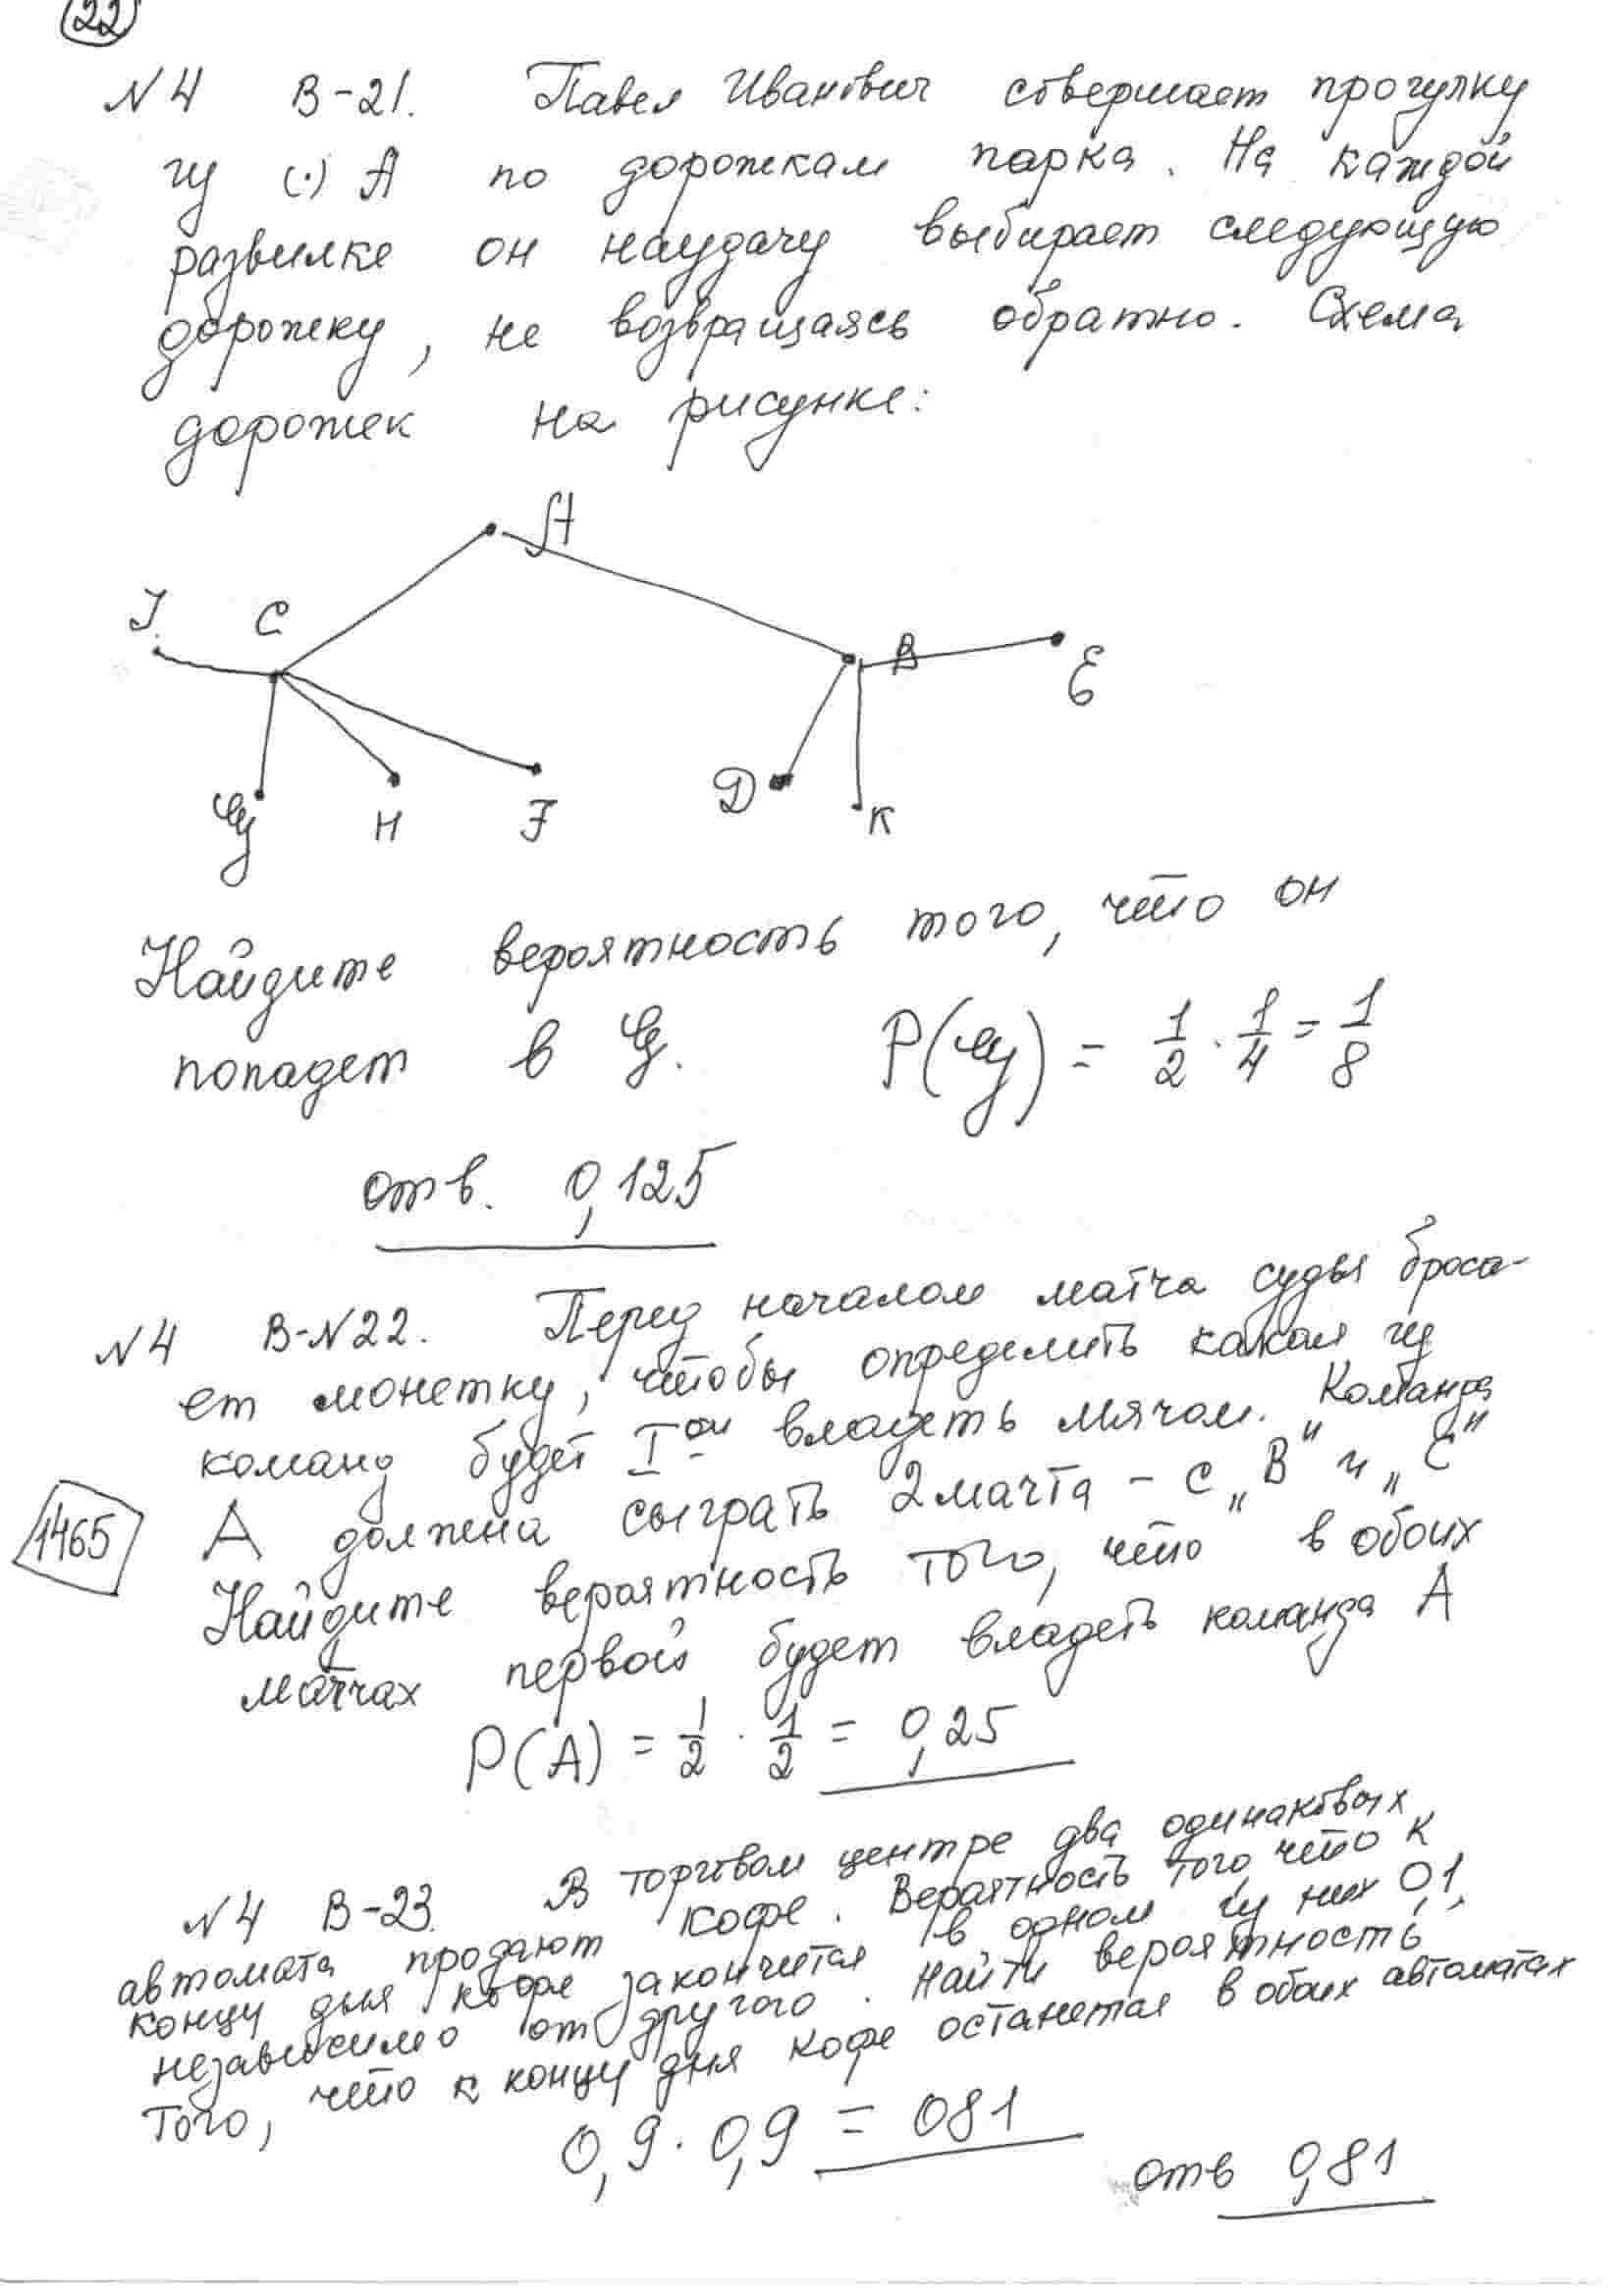 22
№4 В-21. Павел Иванович совершает прогулку
из (·) А по дорожкам парка. На каждой
развилке он наудачу выбирает следующую
дорожку, не возвращаясь обратно. Схема
дорожек на рисунке:
A
J C B E
G H F D K
Найдите вероятность того, что он
попадет в G. P(G) = 1/2 · 1/4 = 1/8
отв. 0,125
№4 В-№22. Перед началом матча судья броса-
ет монетку, чтобы определить какая из
команд будет I ой владеть мячом. Команда
А должна сыграть 2 мачта - с „В" и „С"
1465
Найдите вероятность того, что в обоих
матчах первой будет владеть команда А
P(A) = 1/2 · 1/2 = 0,25
№4 В-23. В торговом центре два одинаковых
автомата продают кофе. Вероятность того, что к
концу дня кофе закончится в одном из них 0,1,
независимо от другого. Найти вероятность
того, что к концу дня кофе останется в обоих автоматах
0,9 · 0,9 = 081
отв 0,81